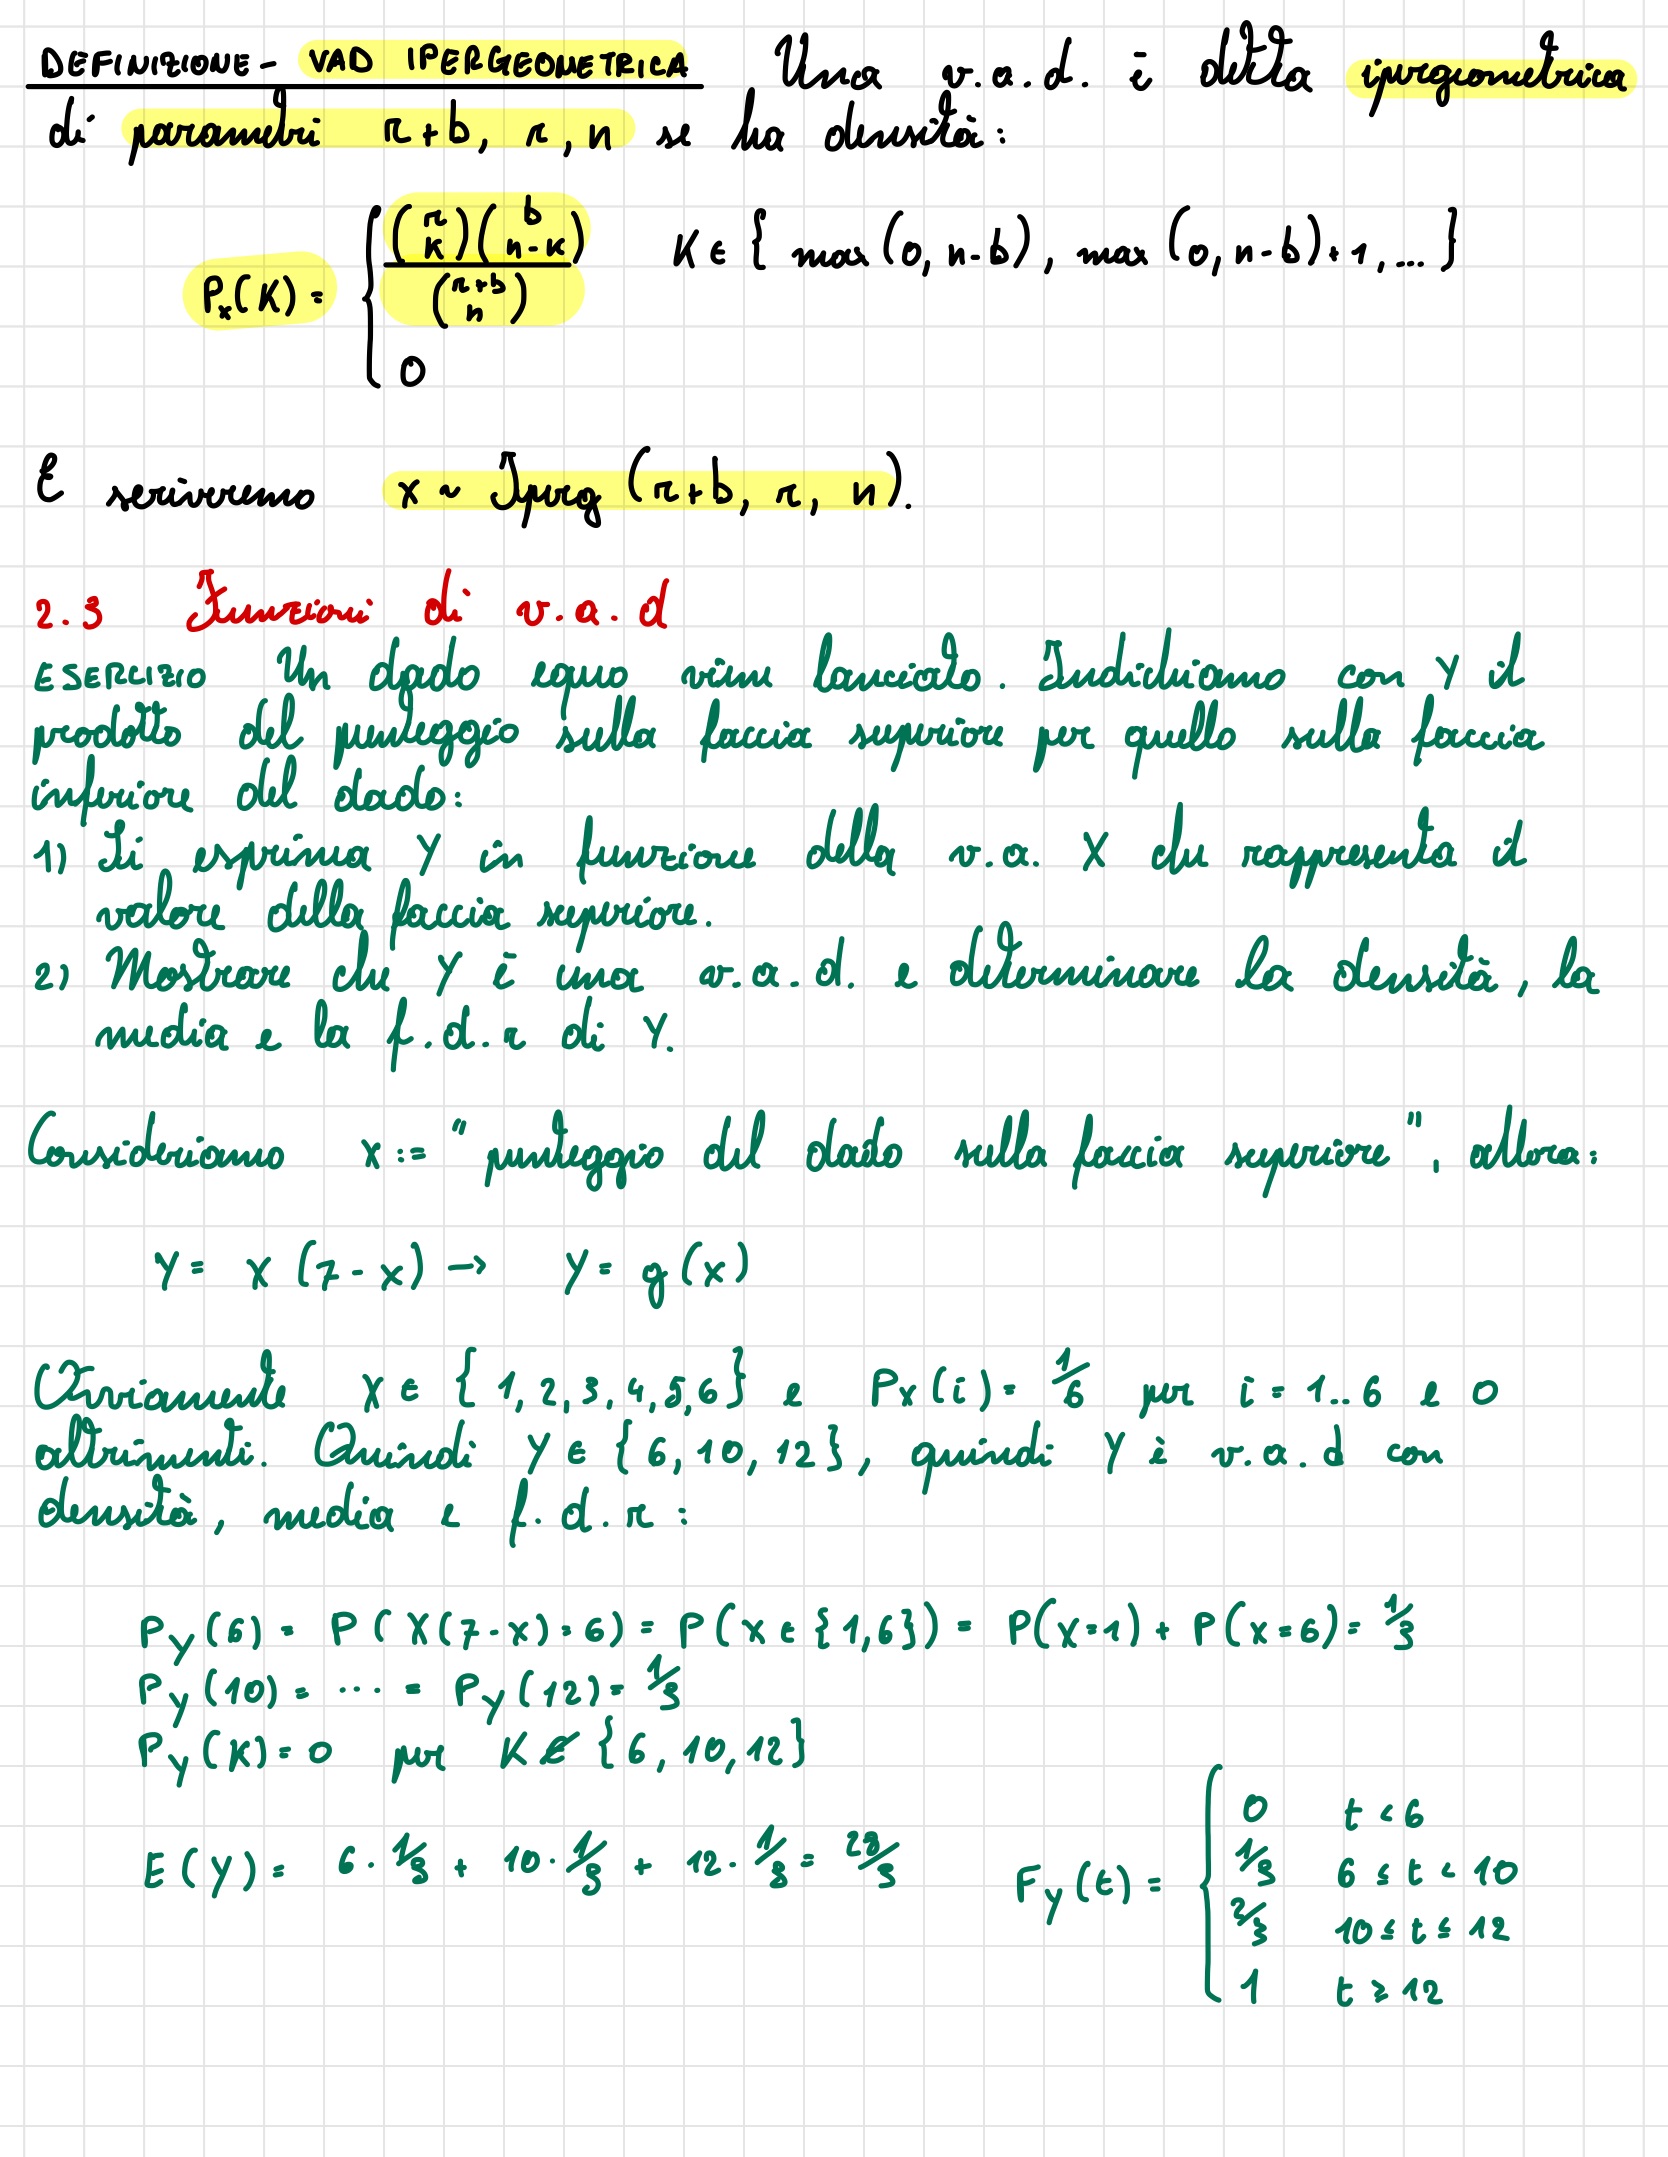 DEFINIZIONE - VAD IPERGEOMETRICA Una v.a.d. è detta ipergeometrica
di parametri r+b, r, n se ha densità:
P_x(K) = { \frac{\binom{r}{K}\binom{b}{n-K}}{\binom{r+b}{n}} K ∈ { max (0, n-b), max (0, n-b)+1, ... }
0
E scriveremo x ~ Iperg (r+b, r, n).
2.3 Funzioni di v.a.d
ESERCIZIO Un dado equo viene lanciato. Indichiamo con Y il
prodotto del punteggio sulla faccia superiore per quello sulla faccia
inferiore del dado:
1) Si esprima Y in funzione della v.a. X che rappresenta il
valore della faccia superiore.
2) Mostrare che Y è una v.a.d. e determinare la densità, la
media e la f.d.r di Y.
Consideriamo x := "punteggio del dado sulla faccia superiore", allora:
Y = X (7-x) → Y = g(x)
Ovviamente X ∈ { 1, 2, 3, 4, 5, 6 } e P_X(i) = 1/6 per i = 1..6 e 0
altrimenti. Quindi Y ∈ { 6, 10, 12 }, quindi Y è v.a.d con
densità, media e f.d.r :
P_Y(6) = P( X(7-x) = 6) = P( x ∈ { 1,6 }) = P(X=1) + P(x=6) = 1/3
P_Y(10) = ... = P_Y(12) = 1/3
P_Y(K) = 0 per K ∉ { 6, 10, 12 }
E(Y) = 6 · 1/3 + 10 · 1/3 + 12 · 1/3 = 28/3
F_Y(t) = { 0 t < 6
1/3 6 ≤ t < 10
2/3 10 ≤ t ≤ 12
1 t ≥ 12